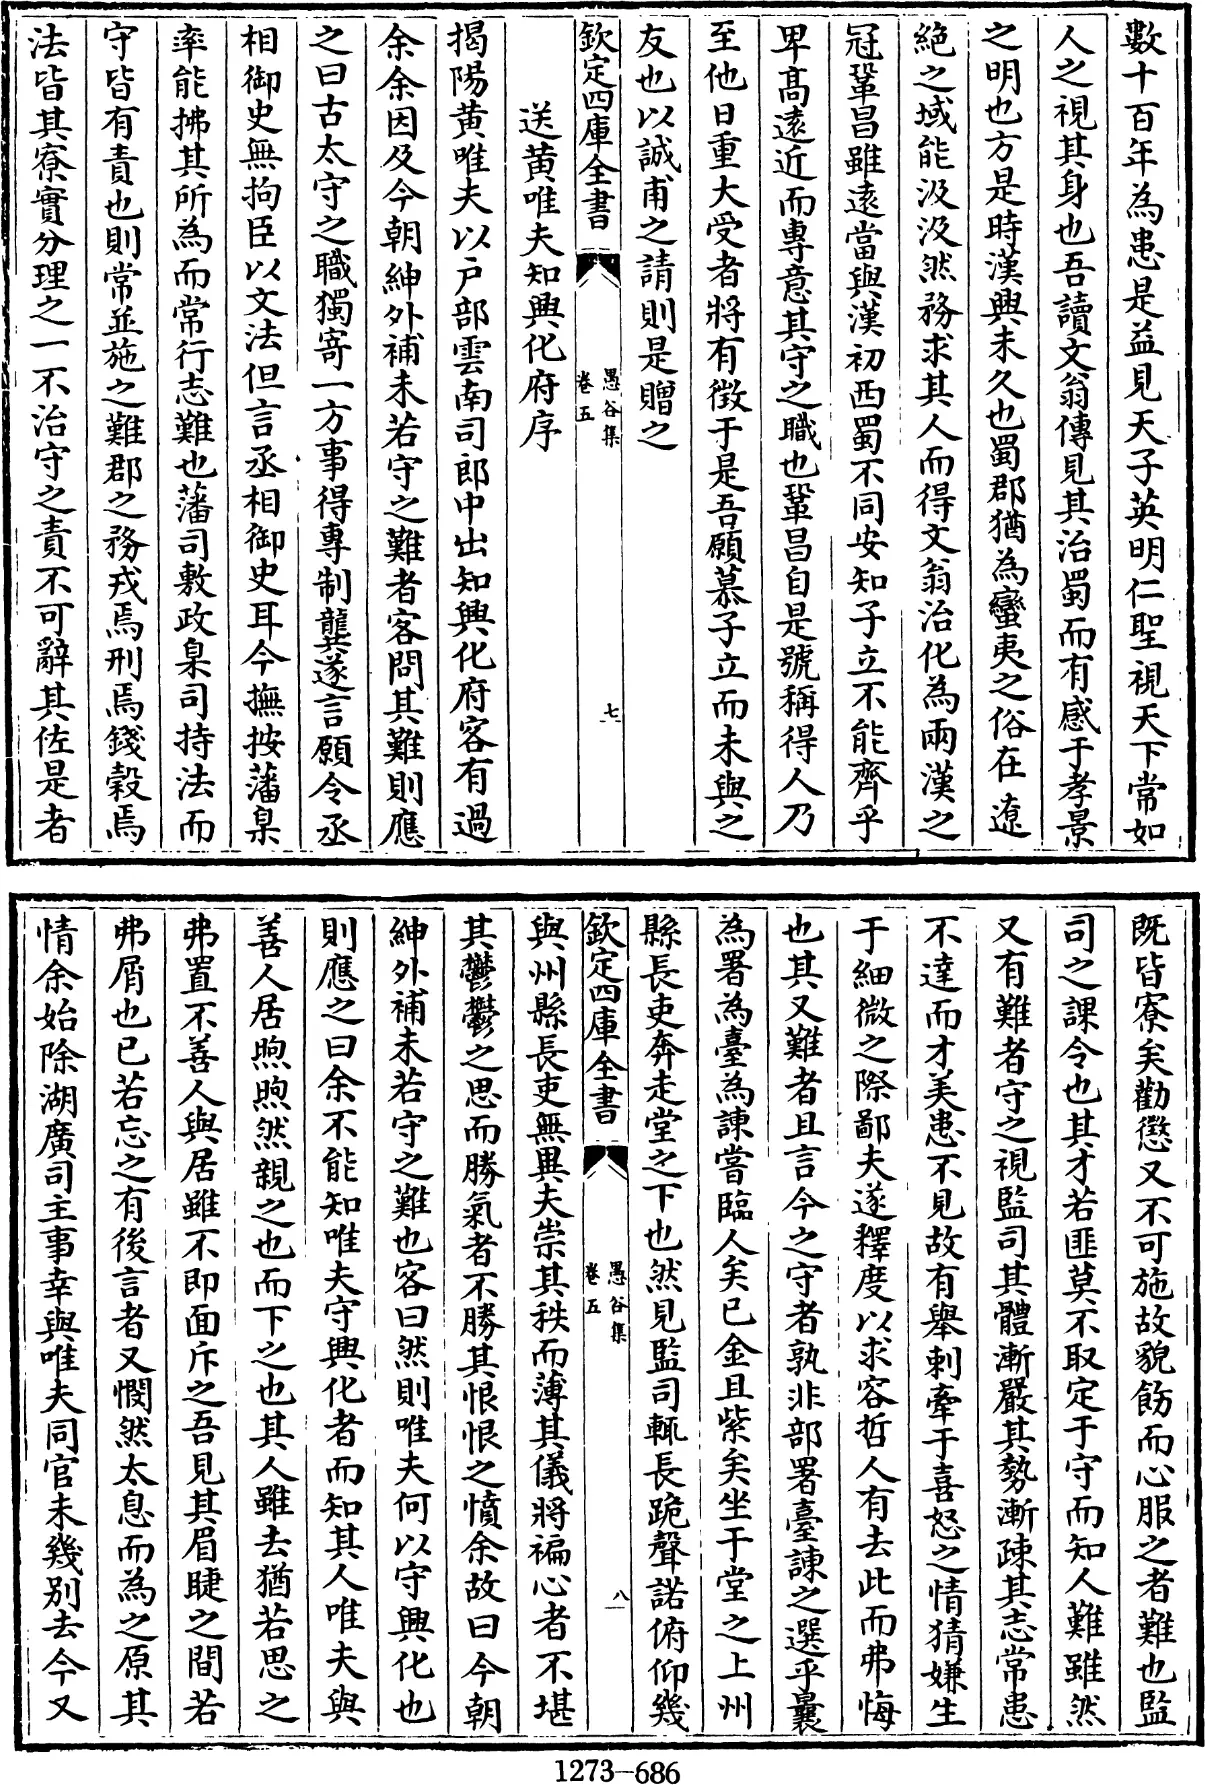 數十百年為患是益見天子英明仁聖視天下常如
人之視其身也吾讀文翁傳見其治蜀而有感于孝景
之明也方是時漢興未久也蜀郡猶為蠻夷之俗在遼
絶之域能汲汲然務求其人而得文翁治化為兩漢之
冠鞏昌雖逺當與漢初西蜀不同安知子立不能齊乎
卑髙逺近而專意其守之職也鞏昌自是號稱得人乃
至他日重大受者將有徴于是吾願慕子立而未與之
友也以誠甫之請則是贈之
欽定四庫全書
愚谷集
卷五
七
送黄唯夫知興化府序
揭陽黄唯夫以户部雲南司郎中出知興化府客有過
余余因及今朝紳外補未若守之難者客問其難則應
之曰古太守之職獨寄一方事得專制龔遂言願令丞
相御史無拘臣以文法但言丞相御史耳今撫按藩臬
率能拂其所為而常行志難也藩司敷政臬司持法而
守皆有責也則常並施之難郡之務戎焉刑焉錢榖焉
法皆其寮實分理之一不治守之責不可辭其佐是者
既皆寮矣勸懲又不可施故貌飭而心服之者難也監
司之課令也其才若匪莫不取定于守而知人難雖然
又有難者守之視監司其體漸嚴其勢漸疎其志常患
不達而才美患不見故有舉刺牽于喜怒之情猜嫌生
于細微之際鄙夫遂釋度以求容哲人有去此而弗悔
也其又難者且言今之守者孰非部署臺諫之選乎曩
為署為臺為諫嘗臨人矣已金且紫矣坐于堂之上州
縣長吏奔走堂之下也然見監司輒長跪聲諾俯仰幾
欽定四庫全書
愚谷集
卷五
八
與州縣長吏無異夫崇其秩而薄其儀將褊心者不堪
其鬱鬱之思而勝氣者不勝其恨恨之憤余故曰今朝
紳外補未若守之難也客曰然則唯夫何以守興化也
則應之曰余不能知唯夫守興化者而知其人唯夫與
善人居煦煦然親之也而下之也其人雖去猶若思之
弗置不善人與居雖不即面斥之吾見其眉睫之間若
弗屑也已若忘之有後言者又憫然太息而為之原其
情余始除湖廣司主事幸與唯夫同官未幾别去今又
1273-686